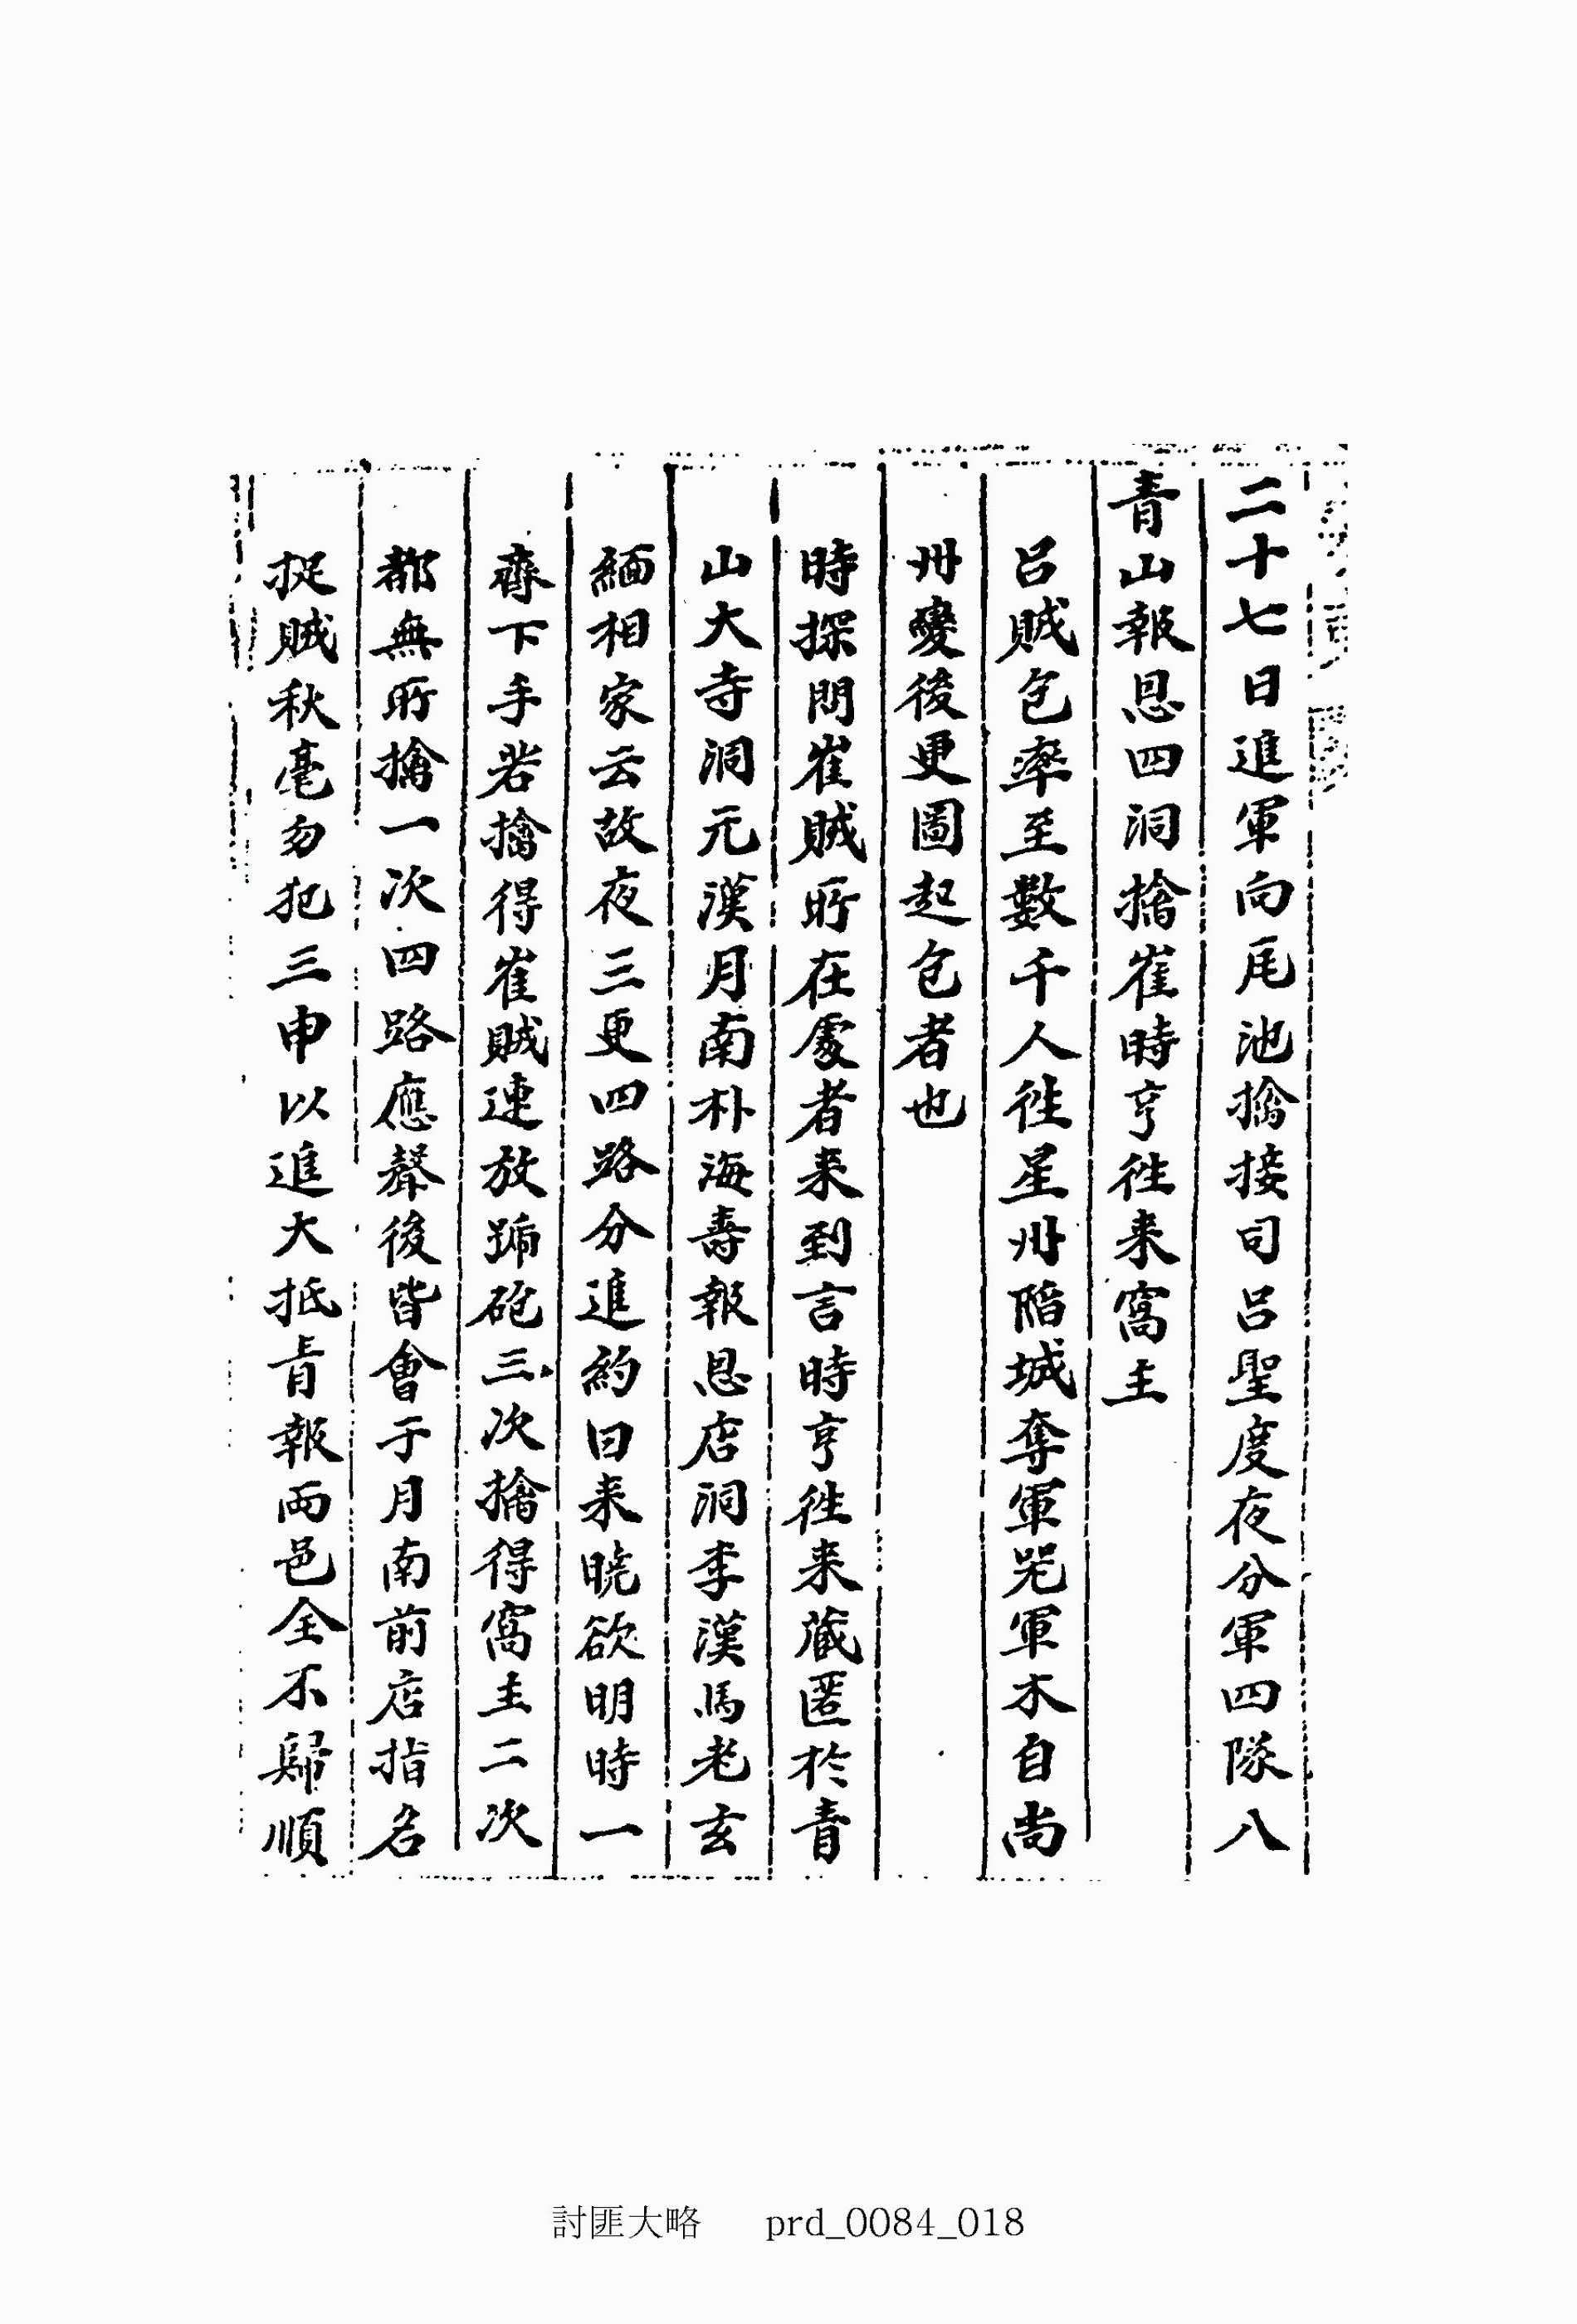 二十七日進軍向尾池擒接司呂聖度夜分軍四隊八
青山報恩四洞擒崔時亨徃来窩主
呂賊包率至數千人徃星州陷城奪軍器軍木自尙
州變後更圖起包者也
時探問崔賊所在處者来到言時亨徃来藏匿於青
山大寺洞元漢月南朴海壽報恩店洞李漢馬老玄
緬相家云故夜三更四路分進約曰来曉欲明時一
齊下手若擒得崔賊連放號砲三次擒得窩主二次
都無所擒一次四路應聲後皆會于月南前店指名
捉賊秋毫勿犯三申以進大抵青報両邑全不歸順
討匪大略 prd_0084_018